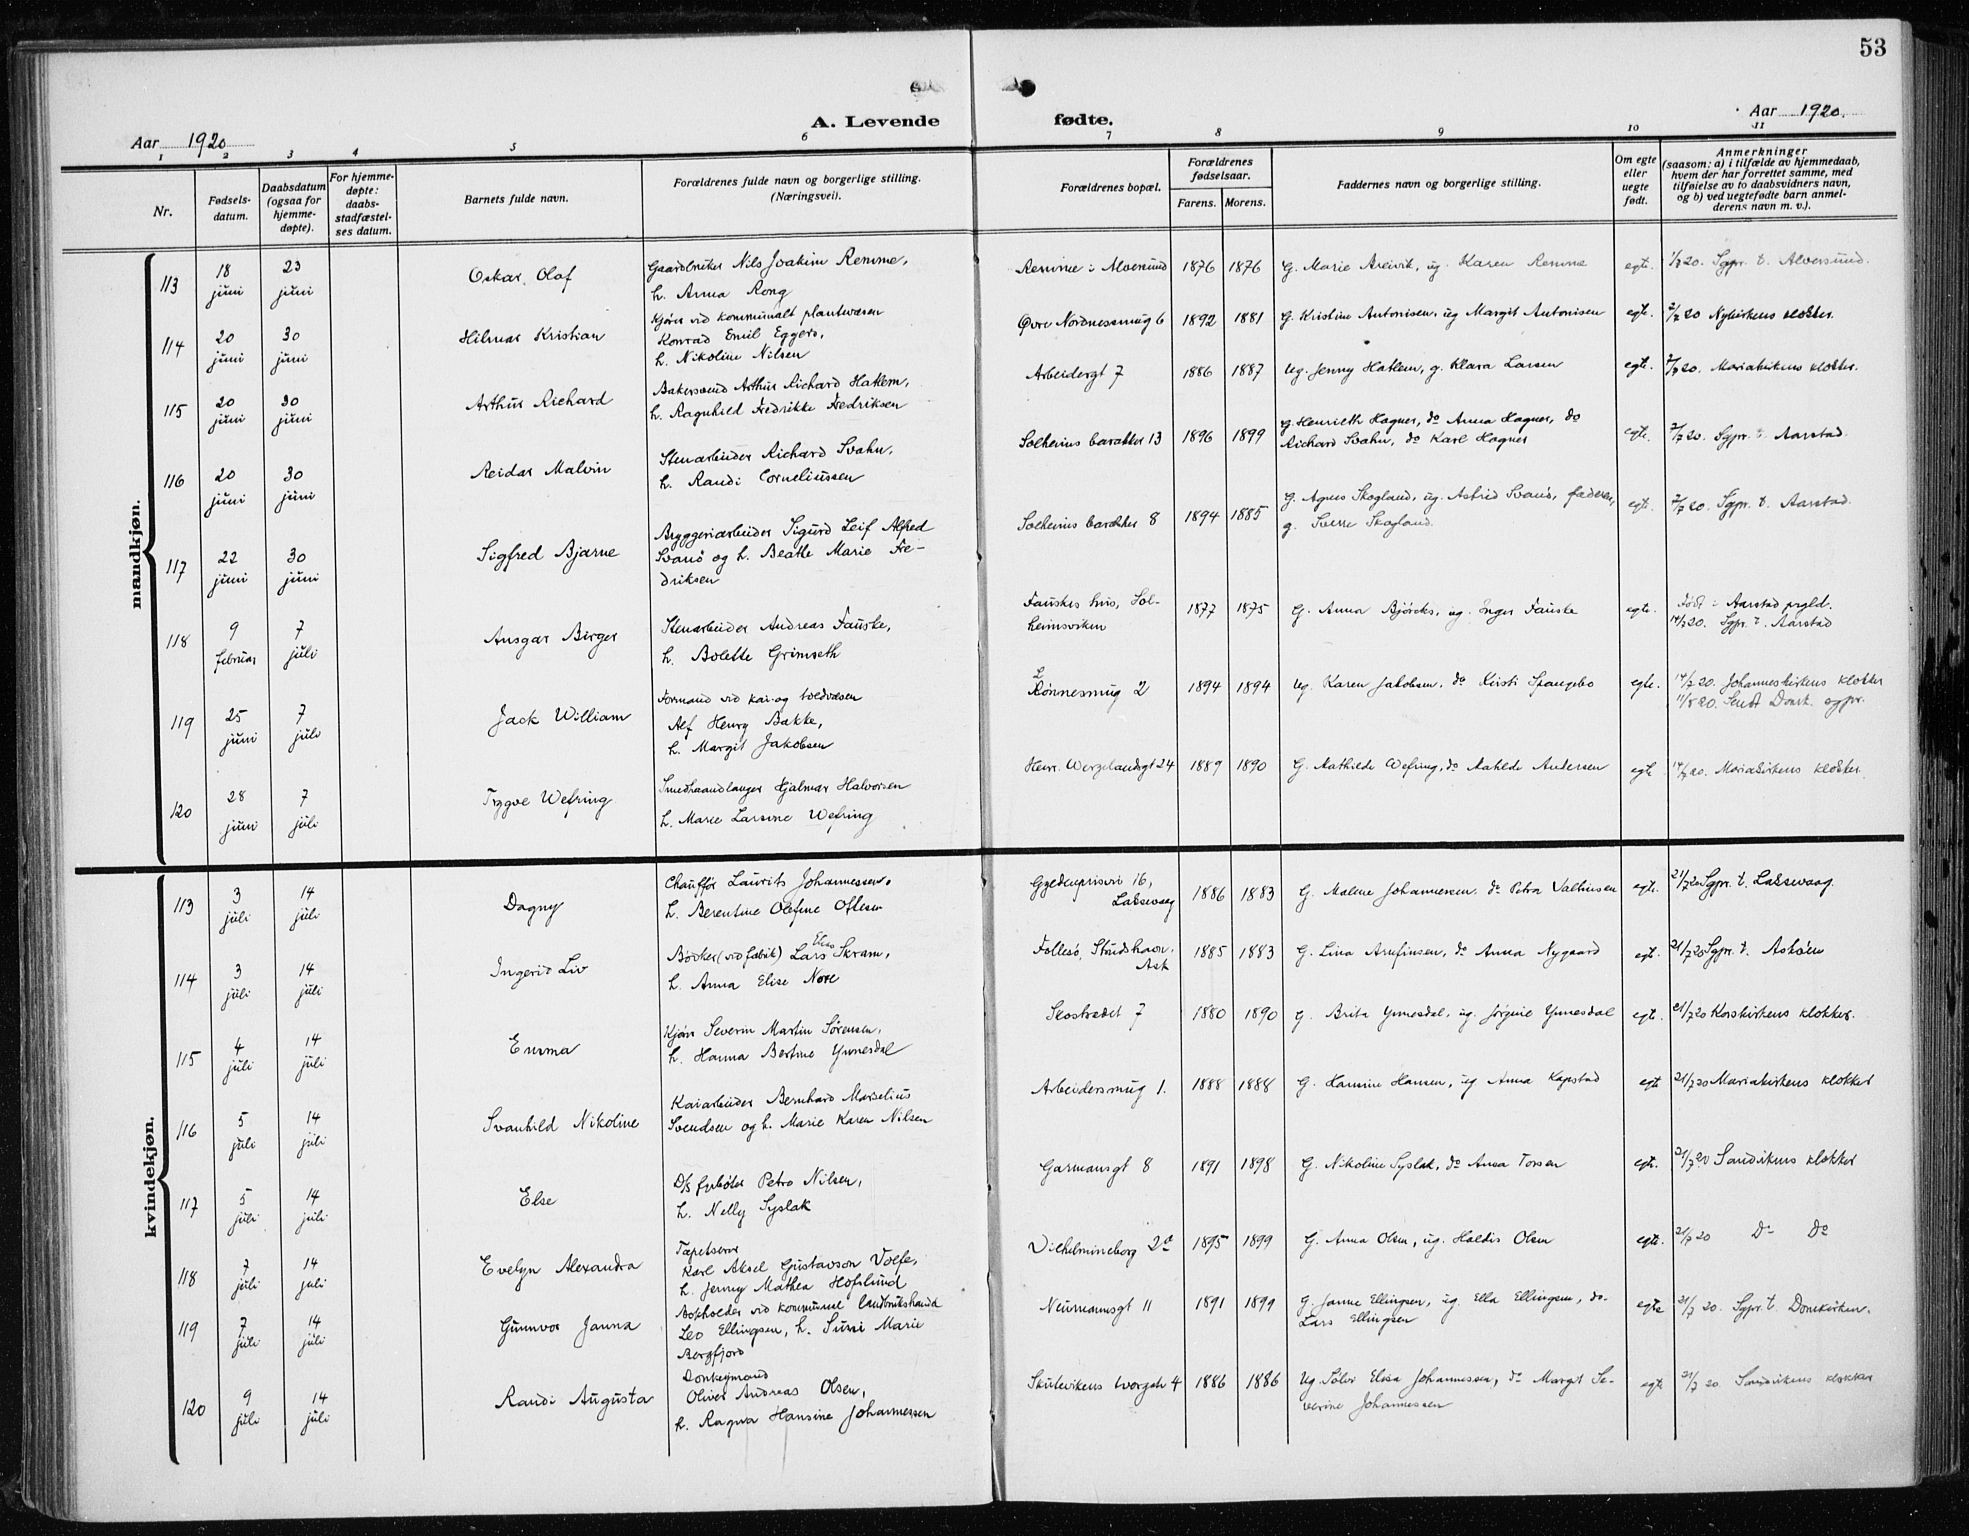 53
A. Levende fødte.
Aar 1920
Aar 1920.
1 2 3 4 5 6 7 8 9 10 11
Nr.
Fødsels-
datum.
Daabsdatum
(ogsaa for
hjemme-
døpte).
For hjemme-
døpte:
daabs-
stadfæstel-
ses datum.
Barnets fulde navn.
Forældrenes fulde navn og borgerlige stilling.
(Næringsvei).
Forældrenes bopæl.
Forældrenes
fødselsaar.
Farens. Morens.
Faddernes navn og borgerlige stilling.
Om egte
eller
uegte
født.
Anmerkninger
(saasom: a) i tilfælde av hjemmedaab,
hvem der har forrettet samme, med
tilføielse av to daabsvidners navn,
og b) ved uegtefødte barn anmel-
derens navn m. v.).
mandkjøn.
113
18
juni
23
juni
Oskar Olaf
Gaardbruker Nils Joakim Remme,
h. Anna Rong
Remme i Alversund
1876 1876
G. Marie Areivik, ug. Karen Remme
egte.
1/7 20. Sgpr. t. Alversund.
114
20
juni
30
juni
Hilmar Kristian
Kjører vid kommunalt plantevæsen
Konrad Emil Eggers,
h. Nikoline Nilsen
Øvre Nordnessmug 6
1892 1881
G. Kristine Antonisen, ug Margit Antonisen
egte.
2/7 20 Nykirkens klokker.
115
20
juni
30
juni
Arthur Richard
Bakersvend Arthur Richard Hatlem,
h. Ragnhild Fredrikke Fredriksen
Arbeidergt 7
1886 1887
Ug. Jenny Hatlem, g. Klara Larsen
egte.
2/7 20. Mariakirkens klokker.
116
20
juni
30
juni
Reidar Malvin
Stenarbeider Richard Svahn,
h. Randi Corneliussen
Solheims barakker 13
1896 1899
G. Henrieth Hagner, do Anna Hagner, do
Richard Svahn, do Karl Hagner
egte.
2/7 20. Sgpr. t. Aarstad.
117
22
juni
30
juni
Sigfred Bjarne
Bryggeriarbeider Sigurd Leif Alfred
Svanö og h. Beathe Marie Fre-
driksen
Solheims barakker 8
1894 1885
G. Agnes Skogland, ug. Astrid Svanö, faderen,
g. Sverre Skogland.
egt.
2/7 20. Sgpr. t. Aarstad.
118
9
februar
7
juli
Ansgar Birger
Stenarbeider Andreas Fauske,
h. Bolette Grimseth
Fauskes hus, Sol-
heimsviken
1877 1875
G. Anna Björeks, ug. Inger Fauske
egte.
Født i Aarstad prgld.
14/7 20. Sgpr. t. Aarstad
119
25
juni
7
juli
Jack William
Formand vid kai-og toldvæsen
Alf Henry Bakke,
h. Margit Jakobsen
Rönnesmug 2
1894 1894
Ug. Karen Jakobsen, do Kirsti Spangebo
egte.
14/7 20. Johanneskirkens klokker
11/5 20. Sendt Domk. sgpr.
120
28
juni
7
juli
Trygve Wefring
Smedhaandlanger Hjalmar Halvorsen
h. Marie Larsine Wefring
Henr. Wergelandsgt 24
1889 1890
G. Mathilde Wefring, do Mahlde Andersen
egte
14/7 20. Mariakirkens klokker.
kvindekjøn.
113
3
juli
14
juli
Dagny
Chauffør Laurits Johannessen,
h. Berentine Olefine Oftesen
Gyldenprisvei 16,
Laksevaag
1886 1883
G. Malene Johannessen. do Petra Valhusen
egte.
21/7 20 Sgpr. t. Laksevaag.
114
3
juli
14
juli
Ingerid Liv
Bödker (vid fabrik) Lars Elias Skram,
h. Anna Elise Nore
Follesö, Strudshavn.
Ask
1885 1883
G. Lina Arnfinsen, do Anna Nygaard
egt.
21/7 20 Sgpr. t. Asköen
115
4
juli
14
juli
Emma
Kjører Severin Martin Sørensen,
h. Hanna Bertine Ynnesdal
Skostrædet 7
1880 1890
G. Brita Ynnesdal, ug. Jørgine Ynnesdal
egt.
21/7 20 Korskirkens klokker.
116
5
juli
14
juli
Svanhild Nikoline
Kaiarbeider Bernhard Marselius
Svendsen og h. Marie Karen Nilsen
Arbeidersmug 1.
1888 1888
G. Hansine Hansen, ug Anna Kapstad
egt
21/7 20 Mariakirkens klokker
117
5
juli
14
juli
Else
D/s fyrböter Petro Nilsen,
h. Nelly Syslak
Garmansgt 8
1891 1898
G. Nikoline Syslak, do Anna Torsen
egt.
21/7 20 Sandvikens klokker
118
7
juli
14
juli
Evelyn Alexandra
Tapetserer
Karl Aksel Gustavson Volfe,
h. Jenny Mathea Hofslund
Vilhelmineborg 2a
1895 1899
G. Anna Olsen, ug. Haldis Olsen
egte.
21/7 20 Do Do
119
7
juli
14
juli
Gunnvor Janna
Bokholder vid kommunal landbrukshandel
Leo Ellingsen, h. Sunni Marie
Bergfjord
Neumannsgt 11
1891 1899
G. Janna Ellingsen, ug. Ella Ellingsen, do.
Lars Ellingsen
egte
21/7 20. Sgpr. t. Domkirken.
120
9
juli
14
juli
Randi Augusta
Donkeymand
Oliver Andreas Olsen,
h. Ragna Hansine Johannessen
Skutevikens torvgate 4
1886 1886
Ug Solvi Elisa Johannessen, do Margit Se-
verine Johannessen
egte
21/7 20. Sandvikens klokker